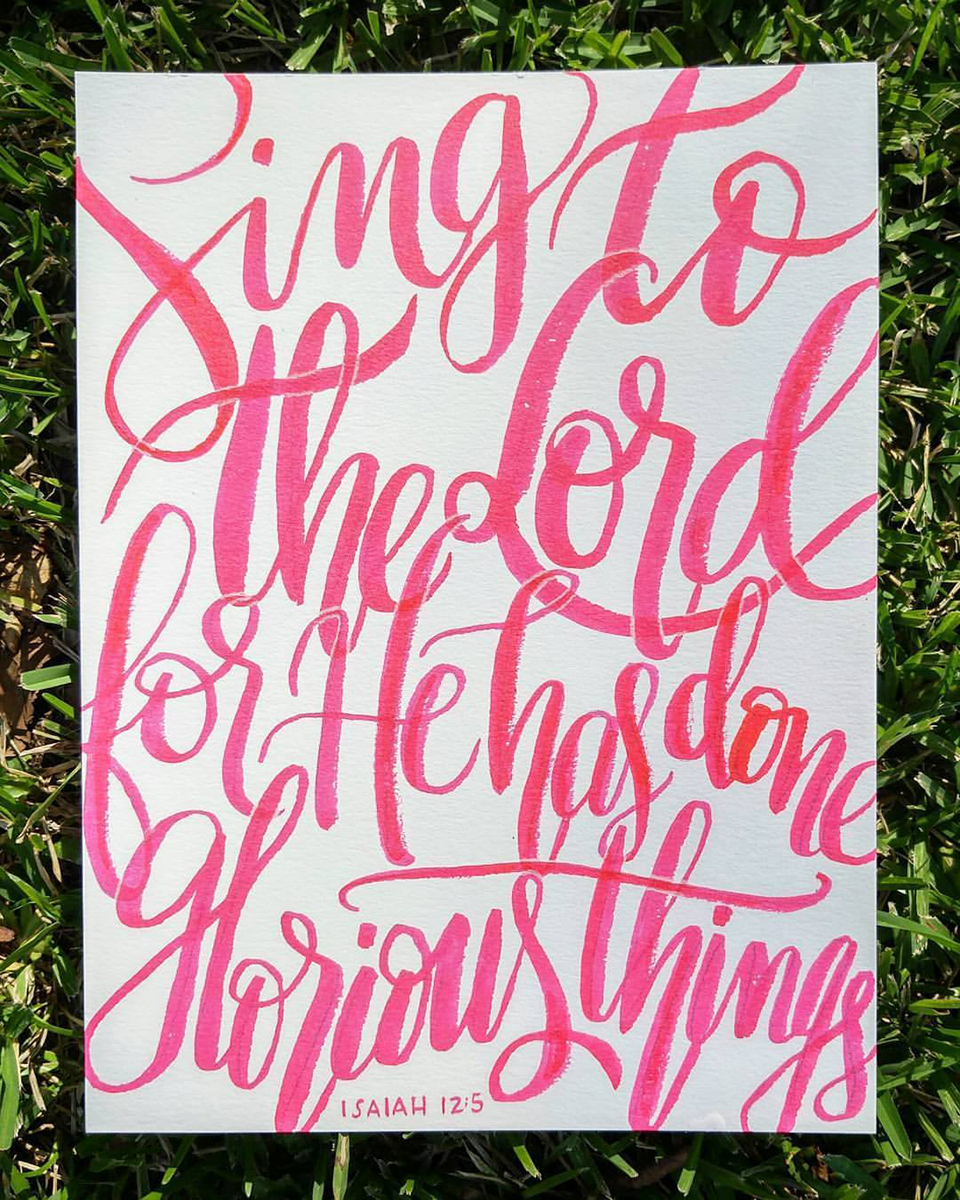 Sing to
the Lord
for He has done
glorious things
ISAIAH 12:5